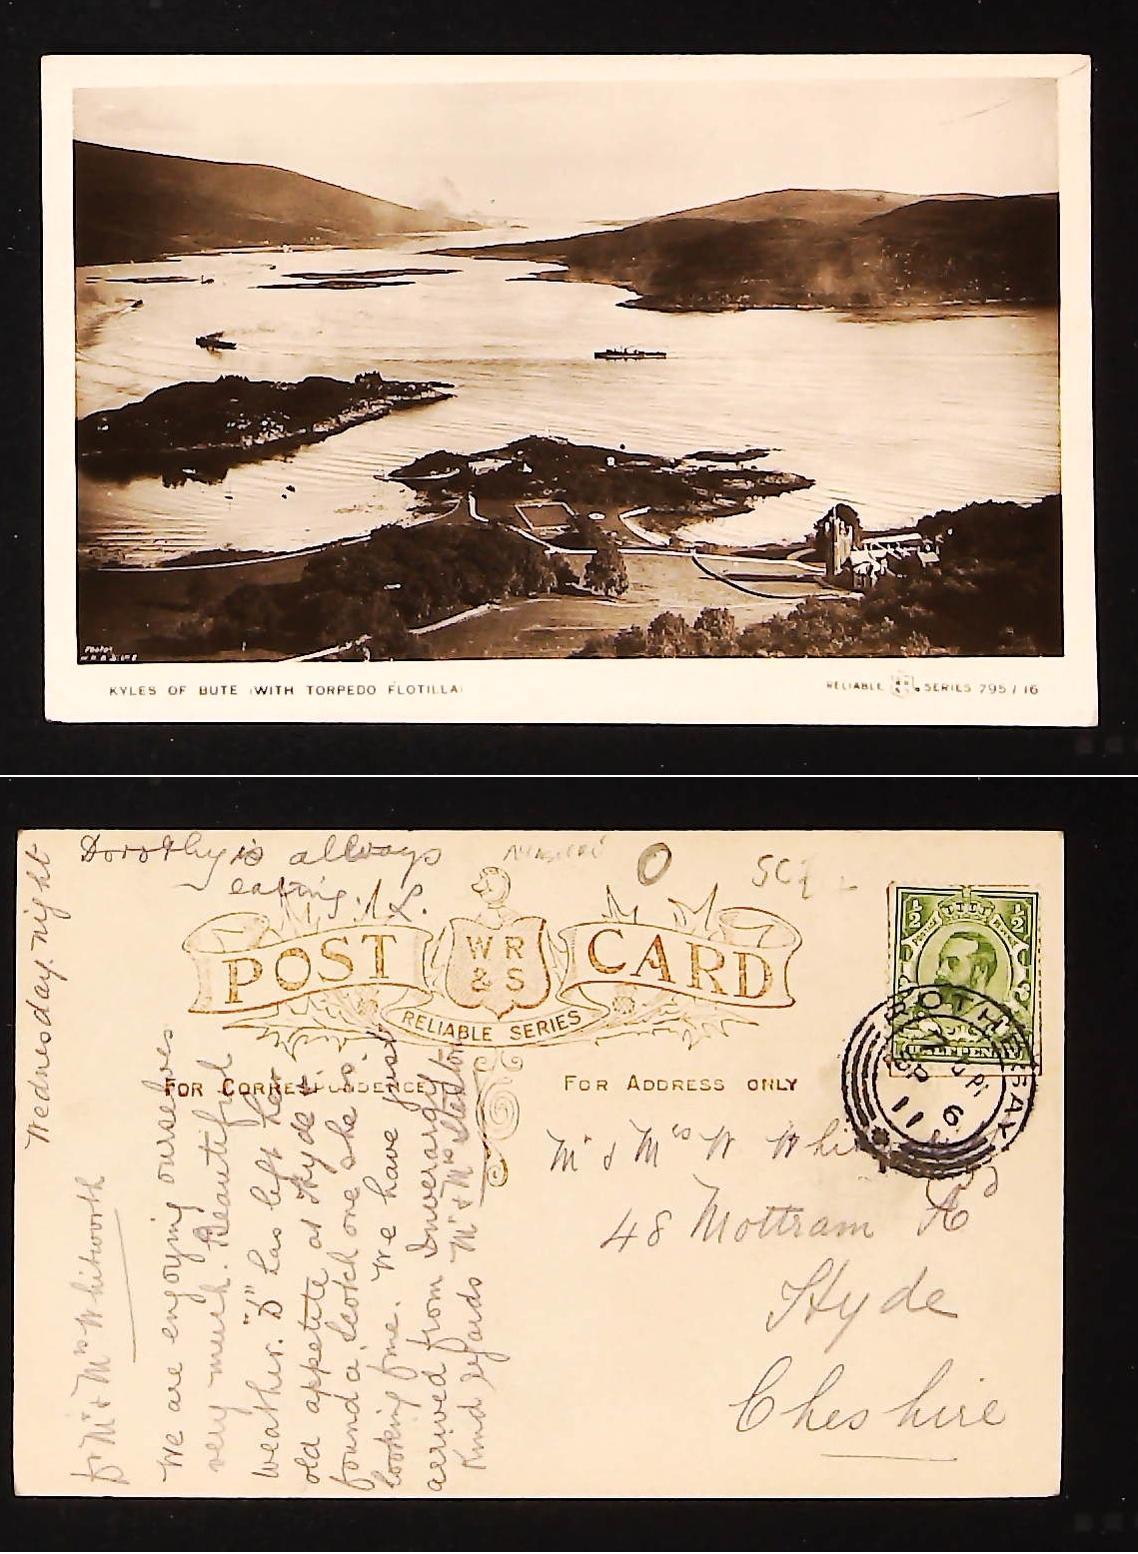 Photo
KYLES OF BUTE (WITH TORPEDO FLOTILLA)
RELIABLE SERIES 795 / 16
Dorothy is allways
eating. L.
POST CARD
W R
& S
RELIABLE SERIES
FOR CORRESPONDENCE
FOR ADDRESS ONLY
½ ½
HALFPENNY
ROTHESAY
6 PM
SP 6
11
Wednesday night
To Mr & Mrs Whitworth
We are enjoying ourselves
very much. Beautiful
weather. "D" has left her
old appetite at Hyde &
found a Scotch one she is
looking fine. We have just
arrived from Inveraray
Kind regards Mr & Mrs
Mr & Mrs W
48 Mottram Rd
Hyde
Cheshire